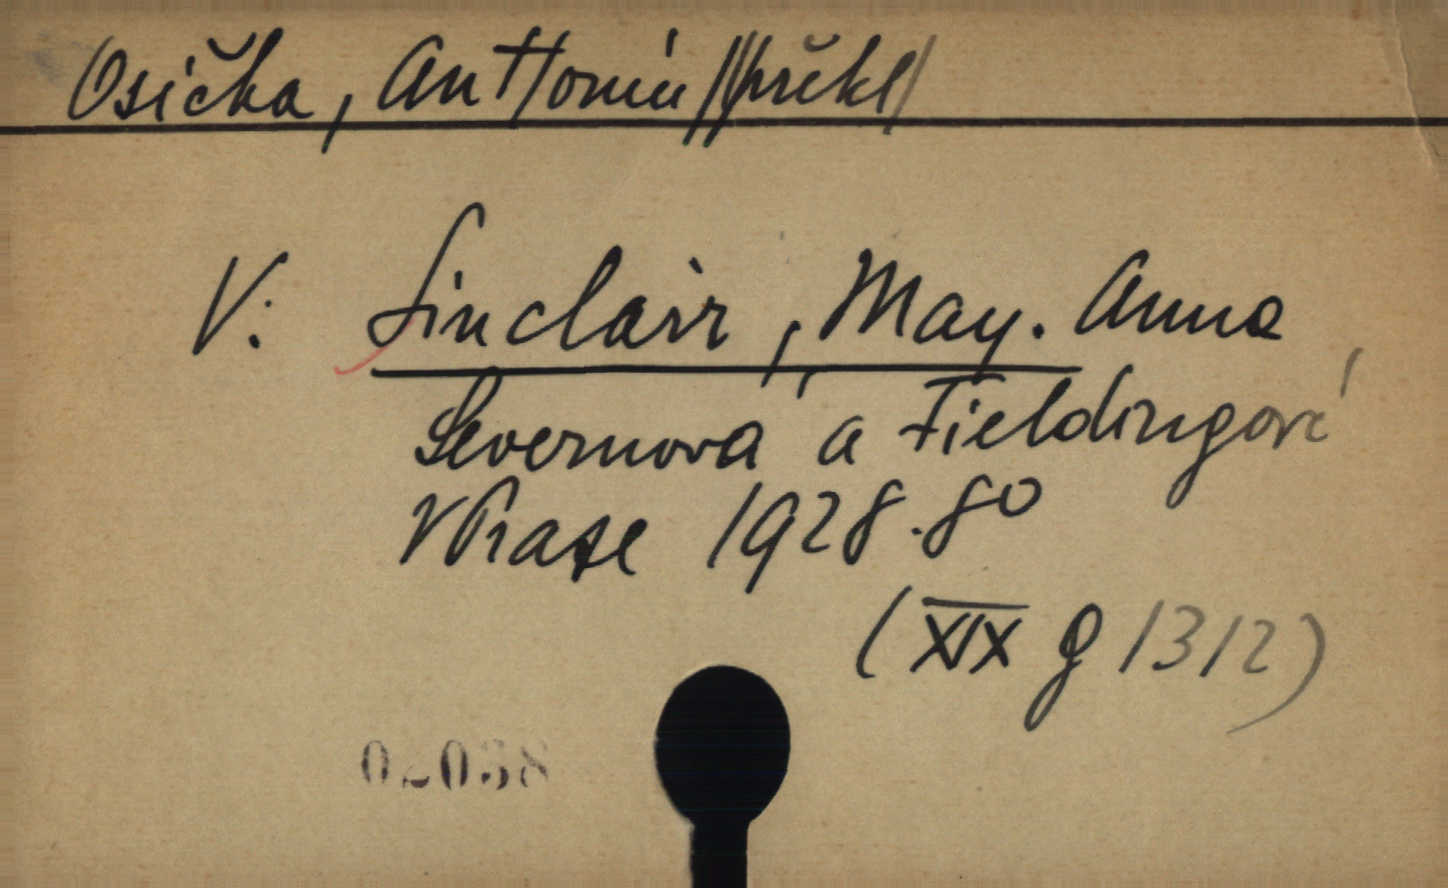 Osička, Ant/onín//překl/
V: Sinclair, May. Anna
Severnová a Fieldingová
V Praze 1928. 80
(XIX g 1312)
02038